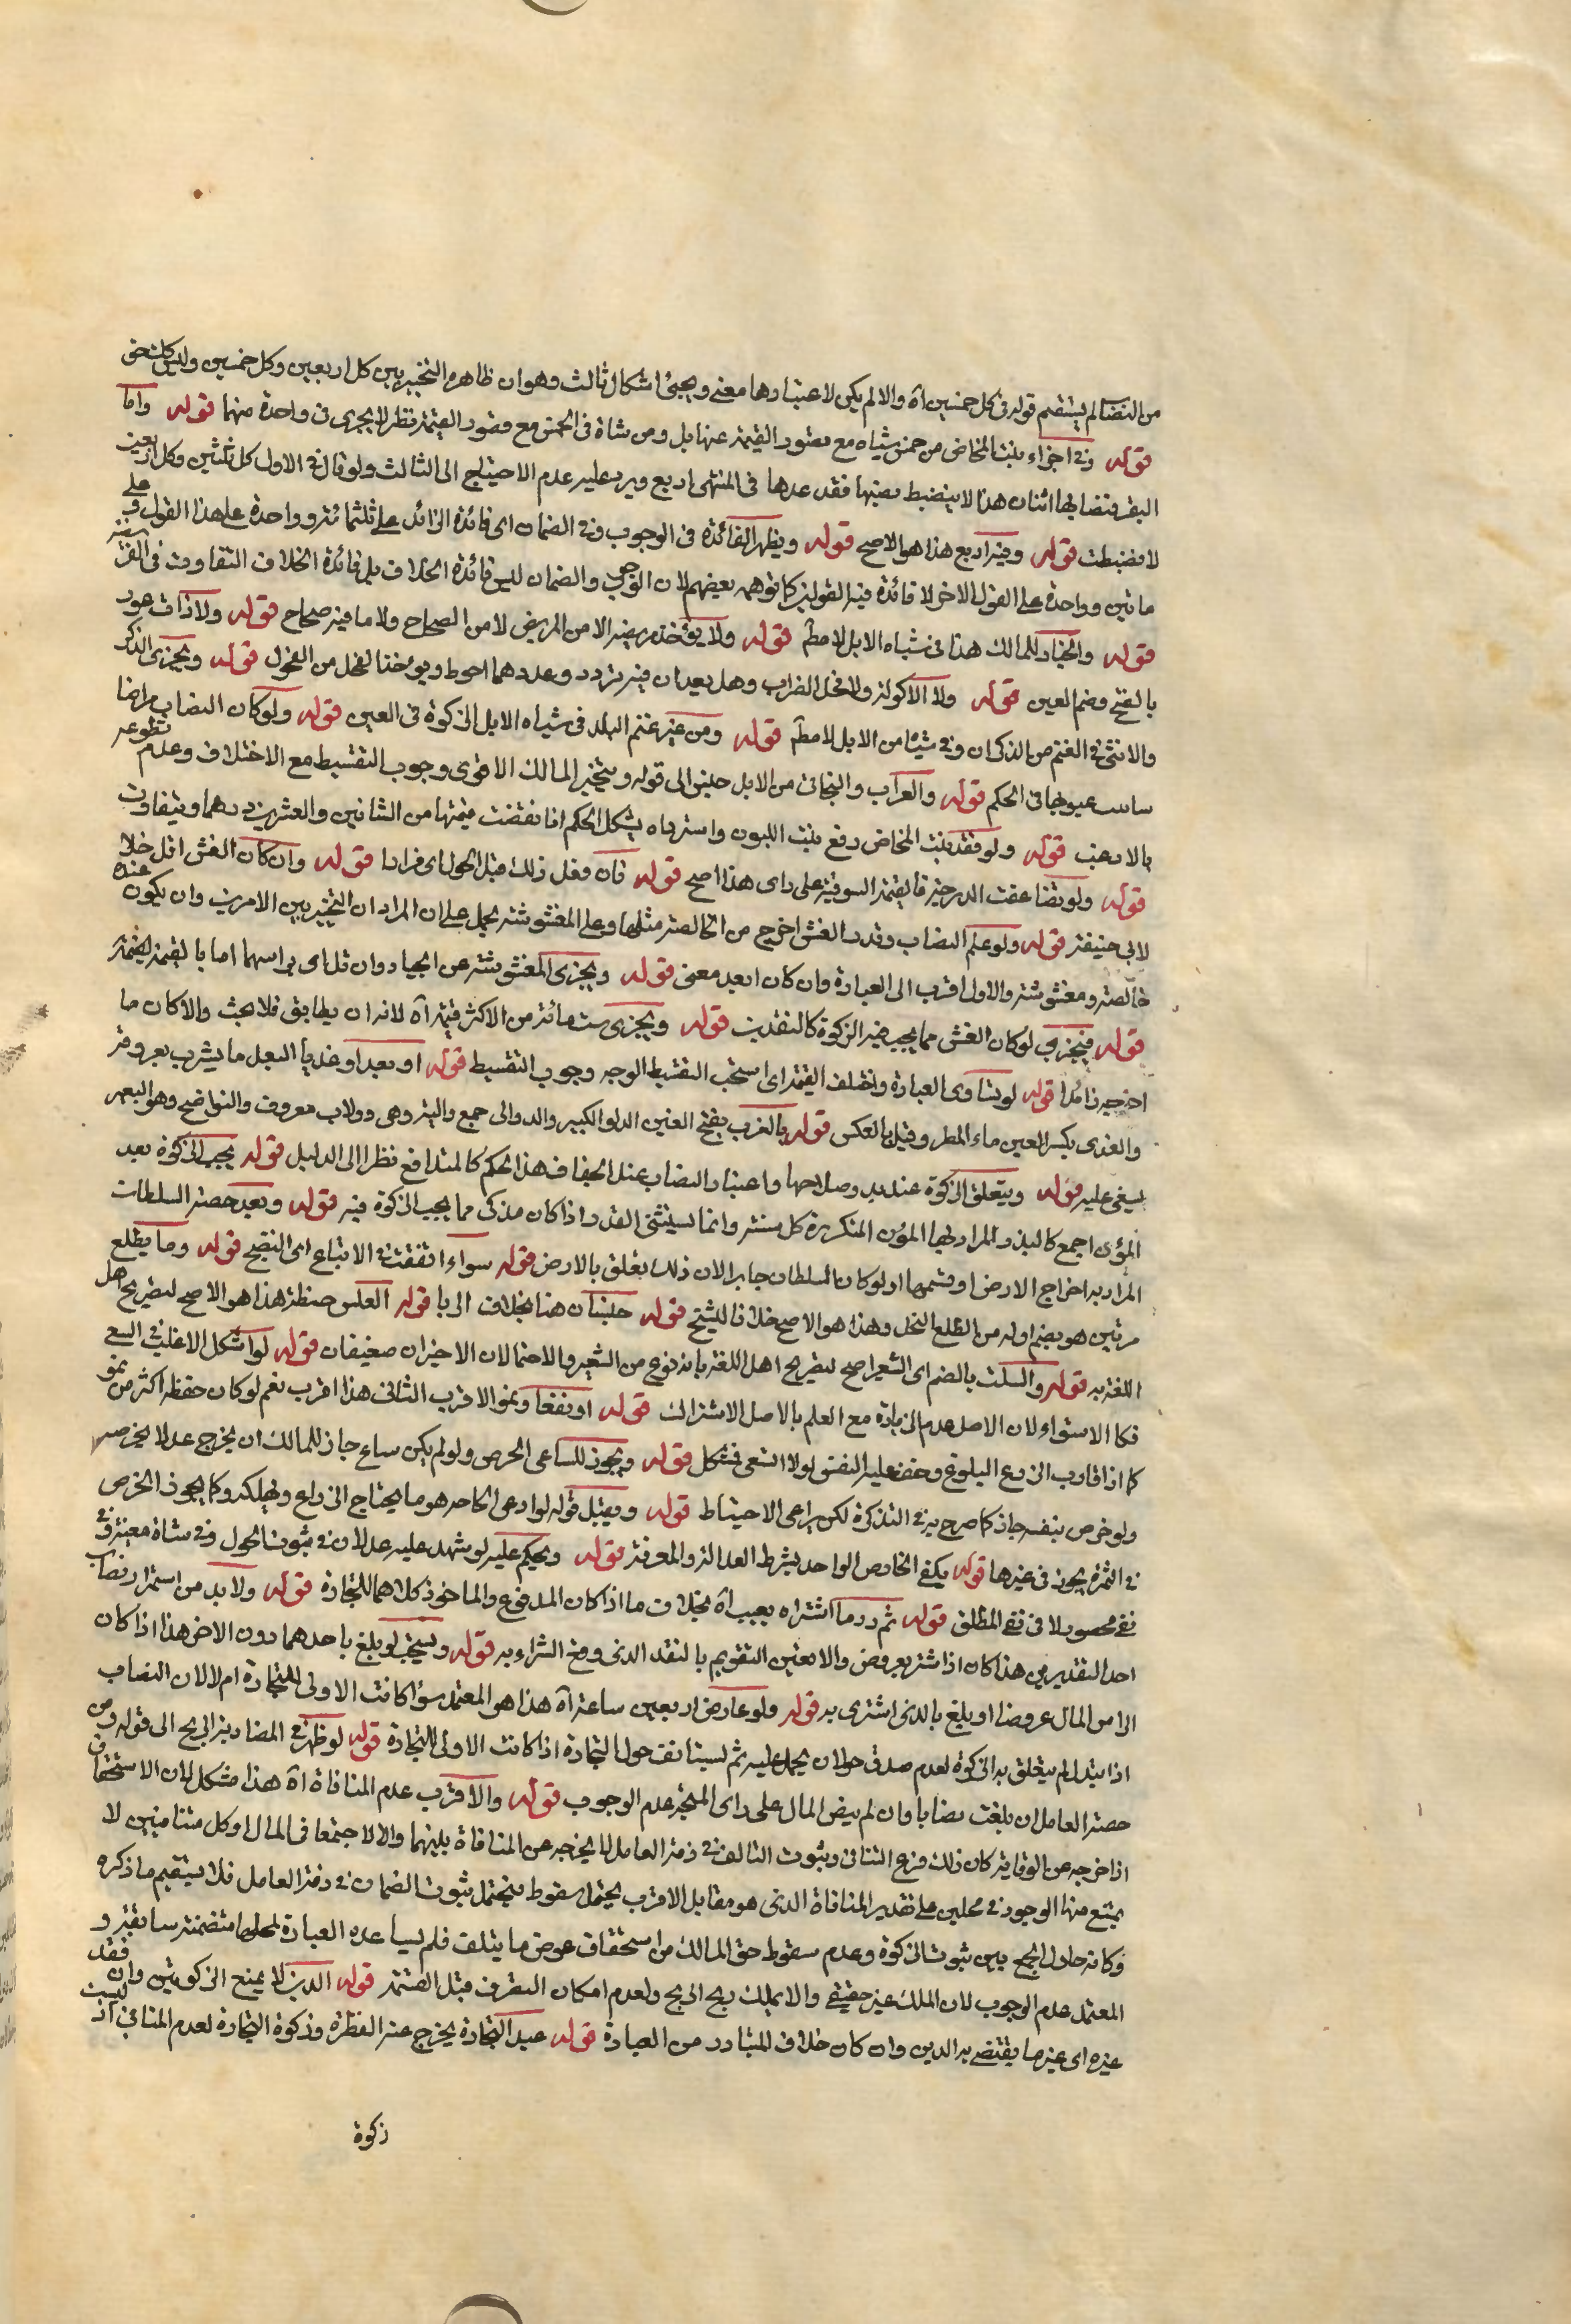 من النصاب لم يستقم قوله في كل خمسين آه والا لم يكن لاعتبارها معنى ويجئ اشكال ثالث وهو ان ظاهره التخيير بين كل اربعين وكل خمسين وليس كك حتى
قوله وفي اجزاء بنت المخاض من خمس شياه مع قصور القيمة عنها بل ومن شاة في الخمس مع قصور القيمة نظر لا يجزى في واحدة منهما قوله واما
البقر فنصابها اثنان هذا لا ينضبط بعينها فقد عدها في المنتهى اربع ويرد عليه عدم الاحتياج الى الثالث ولو قال في الاول كل ثلثين وكل اربعين
لانضبطت قوله وقيل اربع هذا هو الاصح قوله ويظهر الفائدة في الوجوب وفي الضمان اى فائدة الزائد على ثلثمائة وواحدة على هذا القول وعلى
مائتين وواحدة على القول الاخر لا فائدة فيه القولين كما توهمه بعضهم لان الوجوب والضمان ليس فائدة الخلاف بل فائدة الخلاف التفاوت في الفريضة
قوله والخيار للمالك هذا في شياه الابل لا مطم قوله ولا يؤخذ مريضة الا من المريض لا من الصحاح ولا ما فيه صحاح قوله ولا ذات عور
بالفتح وضم العين قوله ولا الاكولة ولا فحل الضراب وهل يعدان فيه تردد وعددهما احوط ويؤخذ الفحل من الفحول قوله ويجزى الذكر
والانثى في الغنم من الذكران وفي شياه من الابل لا مطم قوله ومن غير غنم البلد في شياه الابل الزكوة في العين قوله ولو كان النصاب مراضا
ساسب عيوبها في الحكم قوله والعراب والبخاتى من الابل جنس الى قوله ويتخير المالك الاقوى وجوب التقسيط مع الاختلاف وعدم تطوعه
بالارغب قوله ولو فقد بنت المخاض دفع بنت اللبون واسترد شاه يشكل الحكم اذا نقصت قيمتها من الشاتين والعشرين درهما ويتفاوت
قوله ولو تضاعفت الدرجة فالقيمة السوقية على راى هذا اصح قوله فان فعل ذلك قبل الحول اى فرارا قوله وان كان الغش اقل خلافا
لابى حنيفة قوله ولو علم النصاب وقدر الغش اخرج من الخالصة مثلها وعلى المغشوشة يحمل على ان المراد ان التخيير بين الامرين وان يكون عنده
خالصة ومغشوشة والاول اقرب الى العبارة وان كان ابعد معنى قوله ويجزى المغشوشة عن الجياد وان قل اى براسهما اما بالقيمة لقيمة
قوله فيجزى لو كان الغش مما يجب فيه الزكوة كالنقدين قوله ويجزى ست مائة من الاكثر قيمة آه لانه ان يطابق فلا بحث والا كان ما
اخرجه زائدا قوله لو تساوى العبارة واختلف القيمة اى استحب التقسيط الوجه وجوب التقسيط قوله او بعلا او عذيا البعل ما يشرب بعروقه
والعذى بكسر العين ماء المطر وقيل بالعكس قوله بالغرب بفتح الغين الدلو الكبير والدوالى جمع دالية وهى دولاب معروف والنواضح وهو البعير
يسقى عليه قوله ويتعلق الزكوة عند بدو صلاحها واعتبار النصاب عند الجفاف هذا الحكم كالمتدافع نظرا الى الدليل قوله يجب الزكوة بعد
المؤن اجمع كالبذر المراد بها المؤن المتكررة كل سنة وانما يستثنى القدر اذا كان مزكى مما يجب الزكوة فيه قوله وبعد حصة السلطان
المراد به اخراج الارض او قسمها او لو كان السلطان جابرا لان ذلك تعلق بالارض قوله سواء اتفقت في الايناع اى النضج قوله وما يطلع
مرتين هو بضم اوله من اطلع النخل وهذا هو الاصح خلافا للشيخ قوله جنسان هذا بخلاف الربا قوله العلس حنطة هذا هو الاصح لتصريح اهل
اللغة به قوله والسلت بالضم اى الشعير اصح لتصريح اهل اللغة بانه نوع من الشعير والاحتمالان الاخيران ضعيفان قوله لو اشكل الاغلب في السقى
فكالاستواء لان الاصل عدم الزيادة مع العلم بالاصل الاشتراك قوله او نفعا ونموا الاقرب الثانى هذا اقرب نعم لو كان حفظه اكثر من نمو
كما اذا قارب الزرع البلوغ وخفف عليه النفس لولا السقى فمشكل قوله ويجوز للساعى الخرص ولو لم يكن ساع جاز للمالك ان يخرج عدلا يخرصه
ولو خرص بنفسه جاز كما صرح به في التذكرة لكن يراعى الاحتياط قوله ويقبل قوله لو ادعى الجائحة هو ما يجتاح الزراع ويهلكه وكما يجوز الخرص
في الثمرة يجوز في غيرها قوله يكفى الخارص الواحد بشرط العدالة والمعرفة قوله ويحكم عليه لو شهد عليه عدلان في ثبوت الحول وفي شاة معينة وفي
نفى محصور لا في نفى المطلق قوله ثم رد ما اشتراه بعيب آه بخلاف ما اذا كان المدفوع والماخوذ كلاهما للتجارة قوله ولا بد من استمرار نصاب
احد النقدين هذا كان اذا اشتر بعروض والا تعين التقويم بالنقد الذى وقع الشراء به قوله ويستحب لو بلغ باحدهما دون الاخر هذا اذا كان
الراس المال عروضا او بلغ بالذى اشترى به قوله ولو عارض اربعين ساعة آه هذا هو المعتمد سواء كانت الاولى للتجارة ام لا لان النصاب
اذا تبدل لم يتعلق به الزكوة لعدم صدق حولان يحل عليه ثم يستانف حول التجارة اذا كانت الاولى للتجارة قوله لو ظهر في المضاربة الربح الى قوله ومن
حصة العامل ان بلغت نصابا وان لم ينض المال على راى المتجه عدم الوجوب قوله والاقرب عدم المنافاة آه هذا مشكل لان الاستحقاق
اذا خرجه من الوقاية كان ذلك فرع التنافى وثبوت التالف في ذمة العامل لا يخرجه عن المنافاة بينهما والا لاجتمعا في المال او كل متنافيين لا
يمتنع منها الوجود في محلين على تقدير المنافاة الذى هو مقابل الاقرب يحتمل سقوط فيحتمل ثبوت الضمان في ذمة العامل فلا يستقيم ما ذكره
وكانه حاول الجمع بين ثبوت الزكوة وعدم سقوط حق المالك من استحقاق عوض ما يتلف فلم يساعده العبارة لمحلها متضمنة سابقة و
المعتمد عدم الوجوب لان الملك غير حقيقى والا لملك ربح الربح ولعدم امكان التصرف قبل القسمة قوله الدين لا يمنع الزكوتين وان فقد
غيره اى غير ما يقتضى به الدين وان كان خلاف المتبادر من العبارة قوله عبد التجارة يخرج عنه الفطرة وزكوة التجارة لعدم المنافى اذ ليست
زكوة